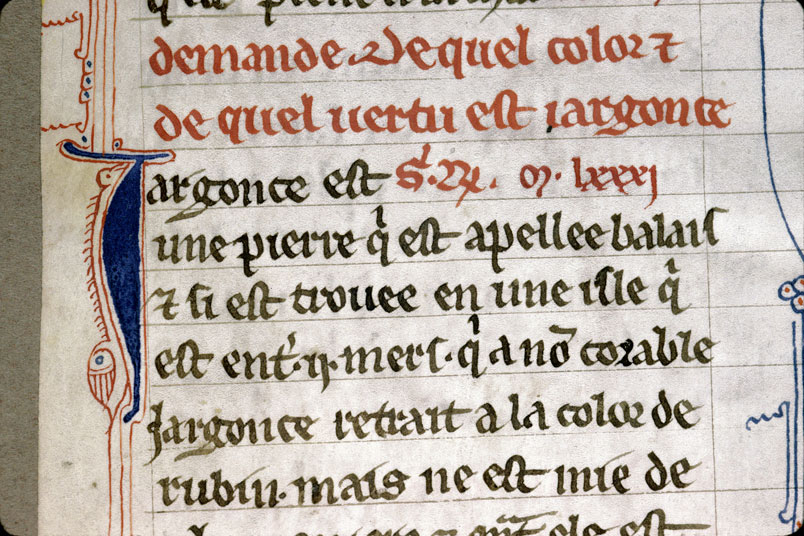 demande De quel color ⁊
de quel uertu est iargonce
Iargonce est
une pierre q̾ est apellee balais
⁊ si est trouee en une isle q̾
est ent̾ .ij. mers. q̾ a nō corable
Jargonce retrait a la color de
rubin. mais ne est mie de